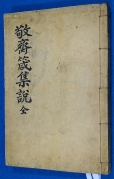 敬齋箴集說 全